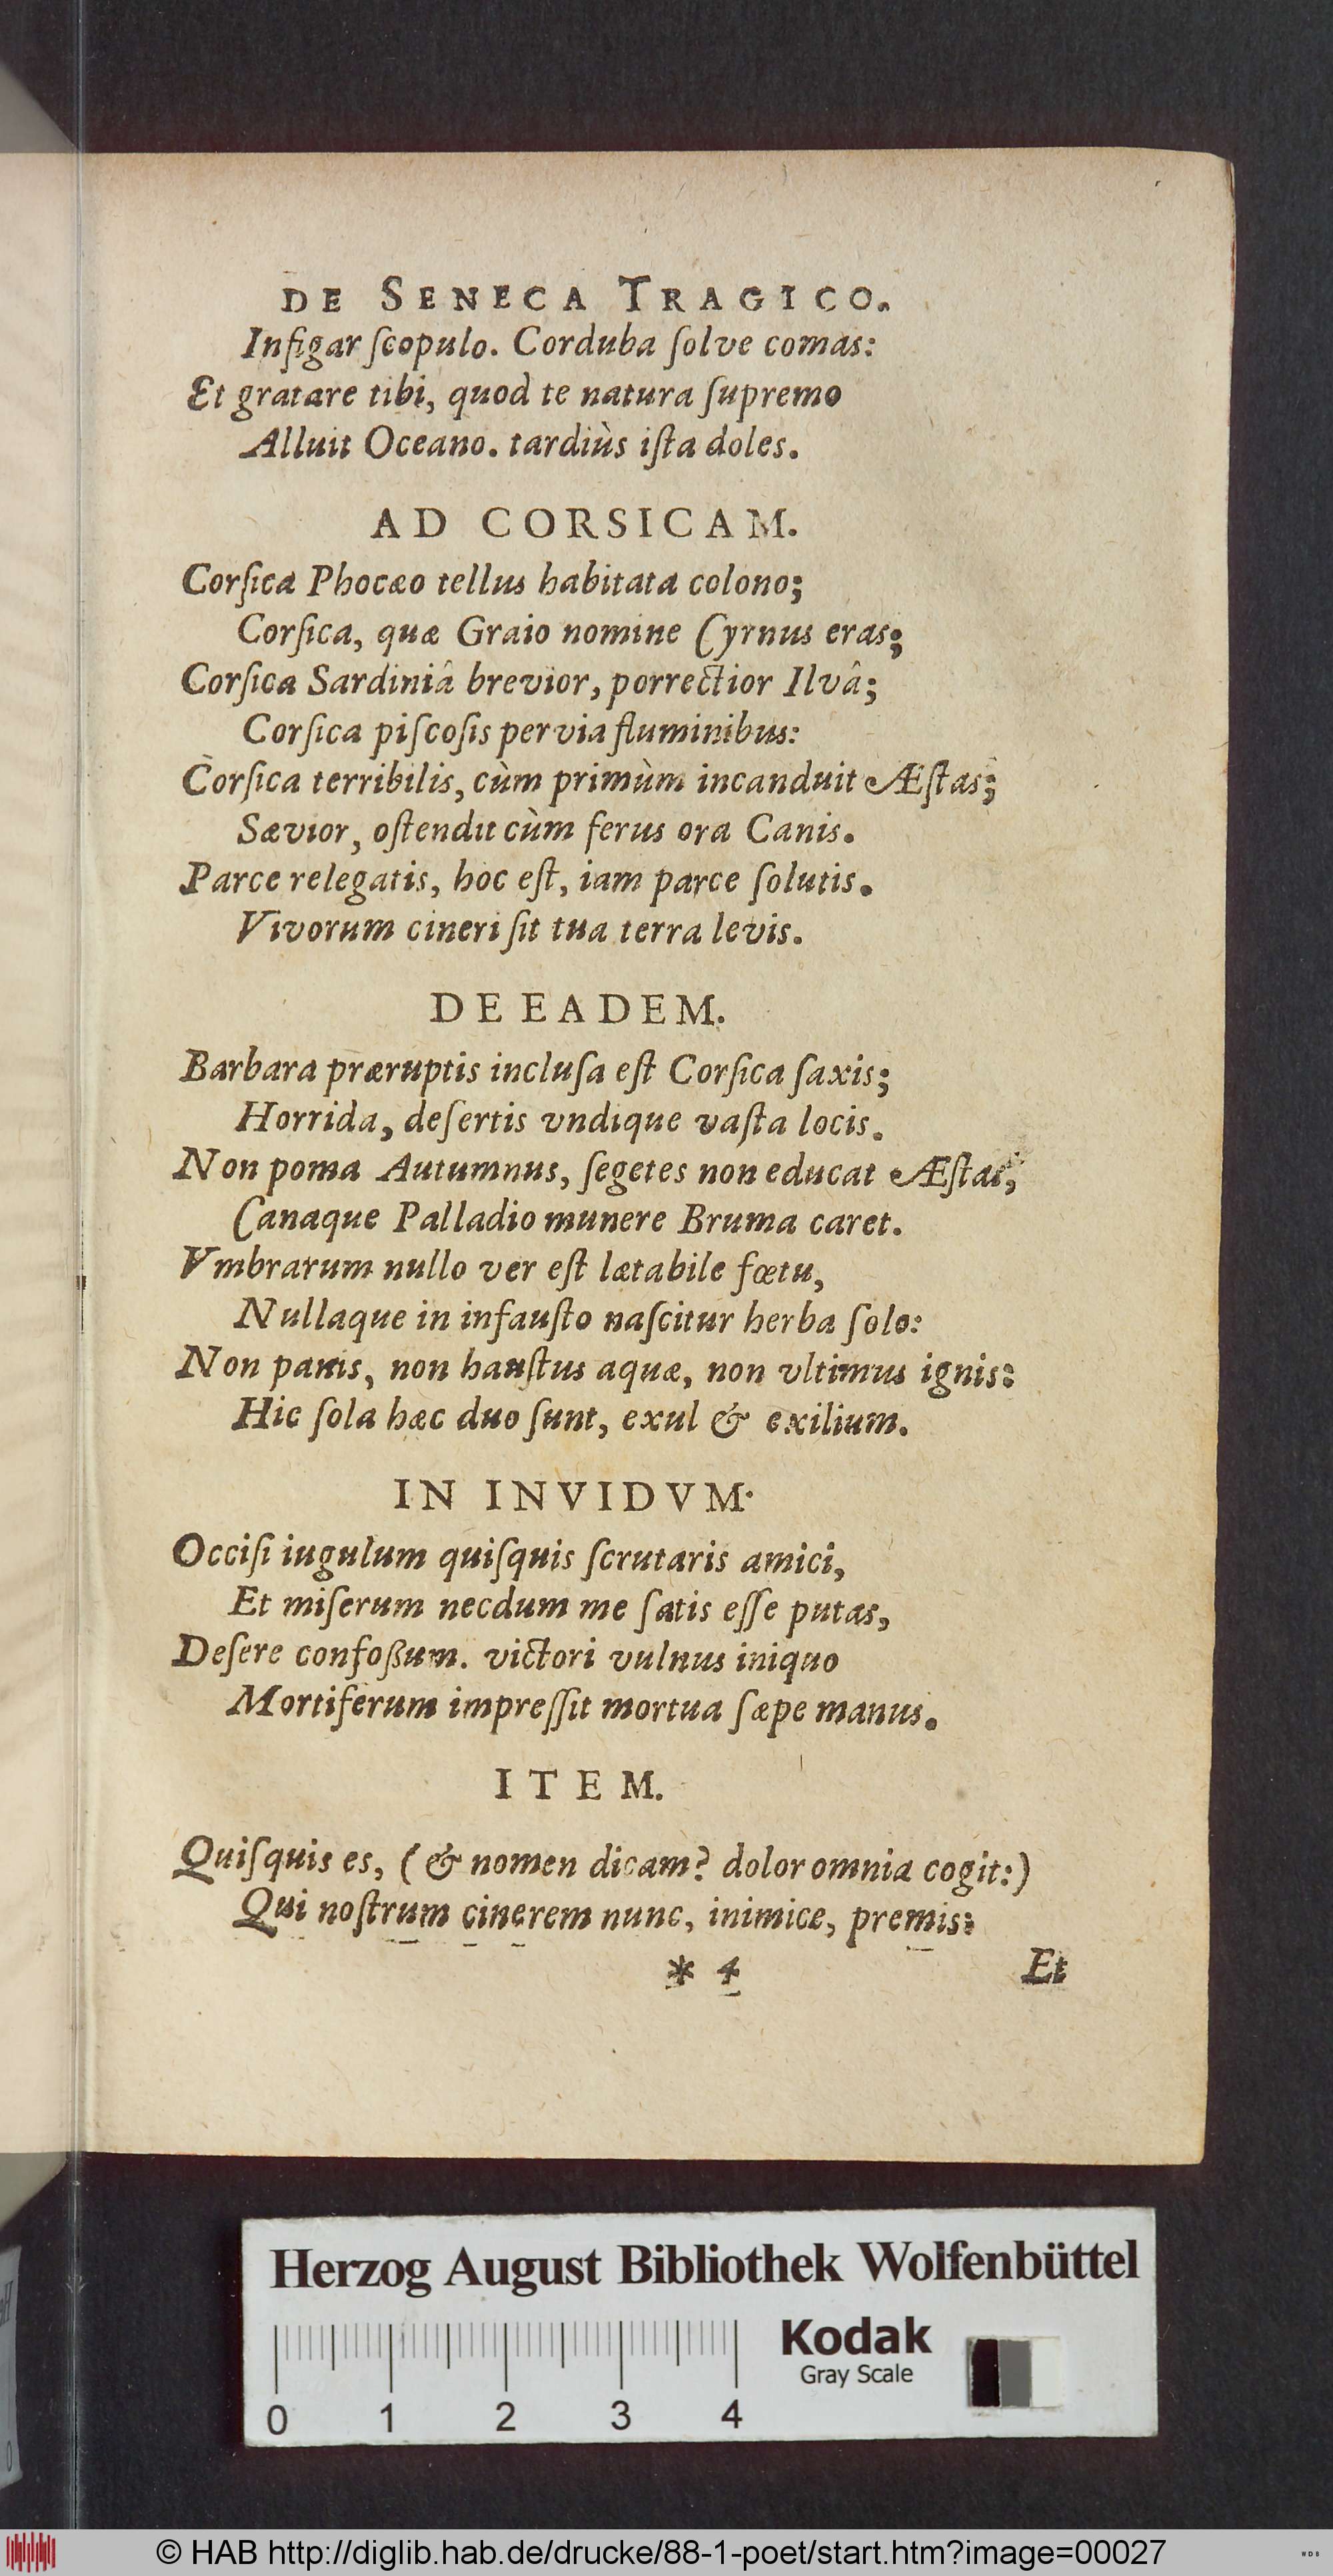 DE SENECA TRAGICO.
Infigar ſcopulo. Corduba ſolve comas:
Et gratare tibi, quod te natura ſupremo
Alluit Oceano. tardiùs iſta doles.
AD CORSICAM.
Corſica Phocæo tellus habitata colono;
Corſica, quæ Graio nomine Cyrnus eras;
Corſica Sardiniâ brevior, porrectior Ilvâ;
Corſica piſcoſis pervia fluminibus:
Corſica terribilis, cùm primùm incanduit Æſtas;
Sævior, oſtendit cùm ferus ora Canis.
Parce relegatis, hoc eſt, iam parce ſolutis.
Vivorum cineri ſit tua terra levis.
DE EADEM.
Barbara præruptis incluſa eſt Corſica ſaxis;
Horrida, deſertis vndique vaſta locis.
Non poma Autumnus, ſegetes non educat Æſtas;
Canaque Palladio munere Bruma caret.
Vmbrarum nullo ver eſt lætabile fœtu,
Nullaque in infauſto naſcitur herba ſolo:
Non panis, non hauſtus aquæ, non vltimus ignis:
Hic ſola hæc duo ſunt, exul & exilium.
IN INVIDVM.
Occiſi iugulum quiſquis ſcrutaris amici,
Et miſerum necdum me ſatis eſſe putas,
Deſere confoßum. victori vulnus iniquo
Mortiferum impreſſit mortua ſæpe manus.
ITEM.
Quiſquis es, (& nomen dicam? dolor omnia cogit:)
Qui noſtrum cinerem nunc, inimice, premis:
* 4 Et
Herzog August Bibliothek Wolfenbüttel
Kodak
Gray Scale
0 1 2 3 4
© HAB http://diglib.hab.de/drucke/88-1-poet/start.htm?image=00027